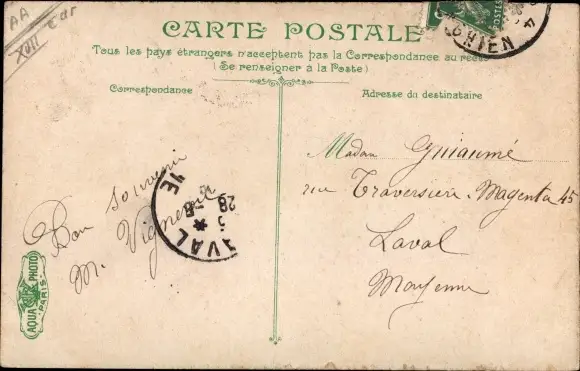 AA
XVII Car
CARTE POSTALE
Tous les pays étrangers n'acceptent pas la Correspondance au recto
(Se renseigner à la Poste)
Correspondance
Adresse du destinataire
POSTES
GHIEN
4
Bon souvenir
M. Vigneau
AVAL
NE
28
AQUA PHOTO
PARIS
Madam Guiaumé
rue Traversière-Magenta 45
Laval
Mayenne